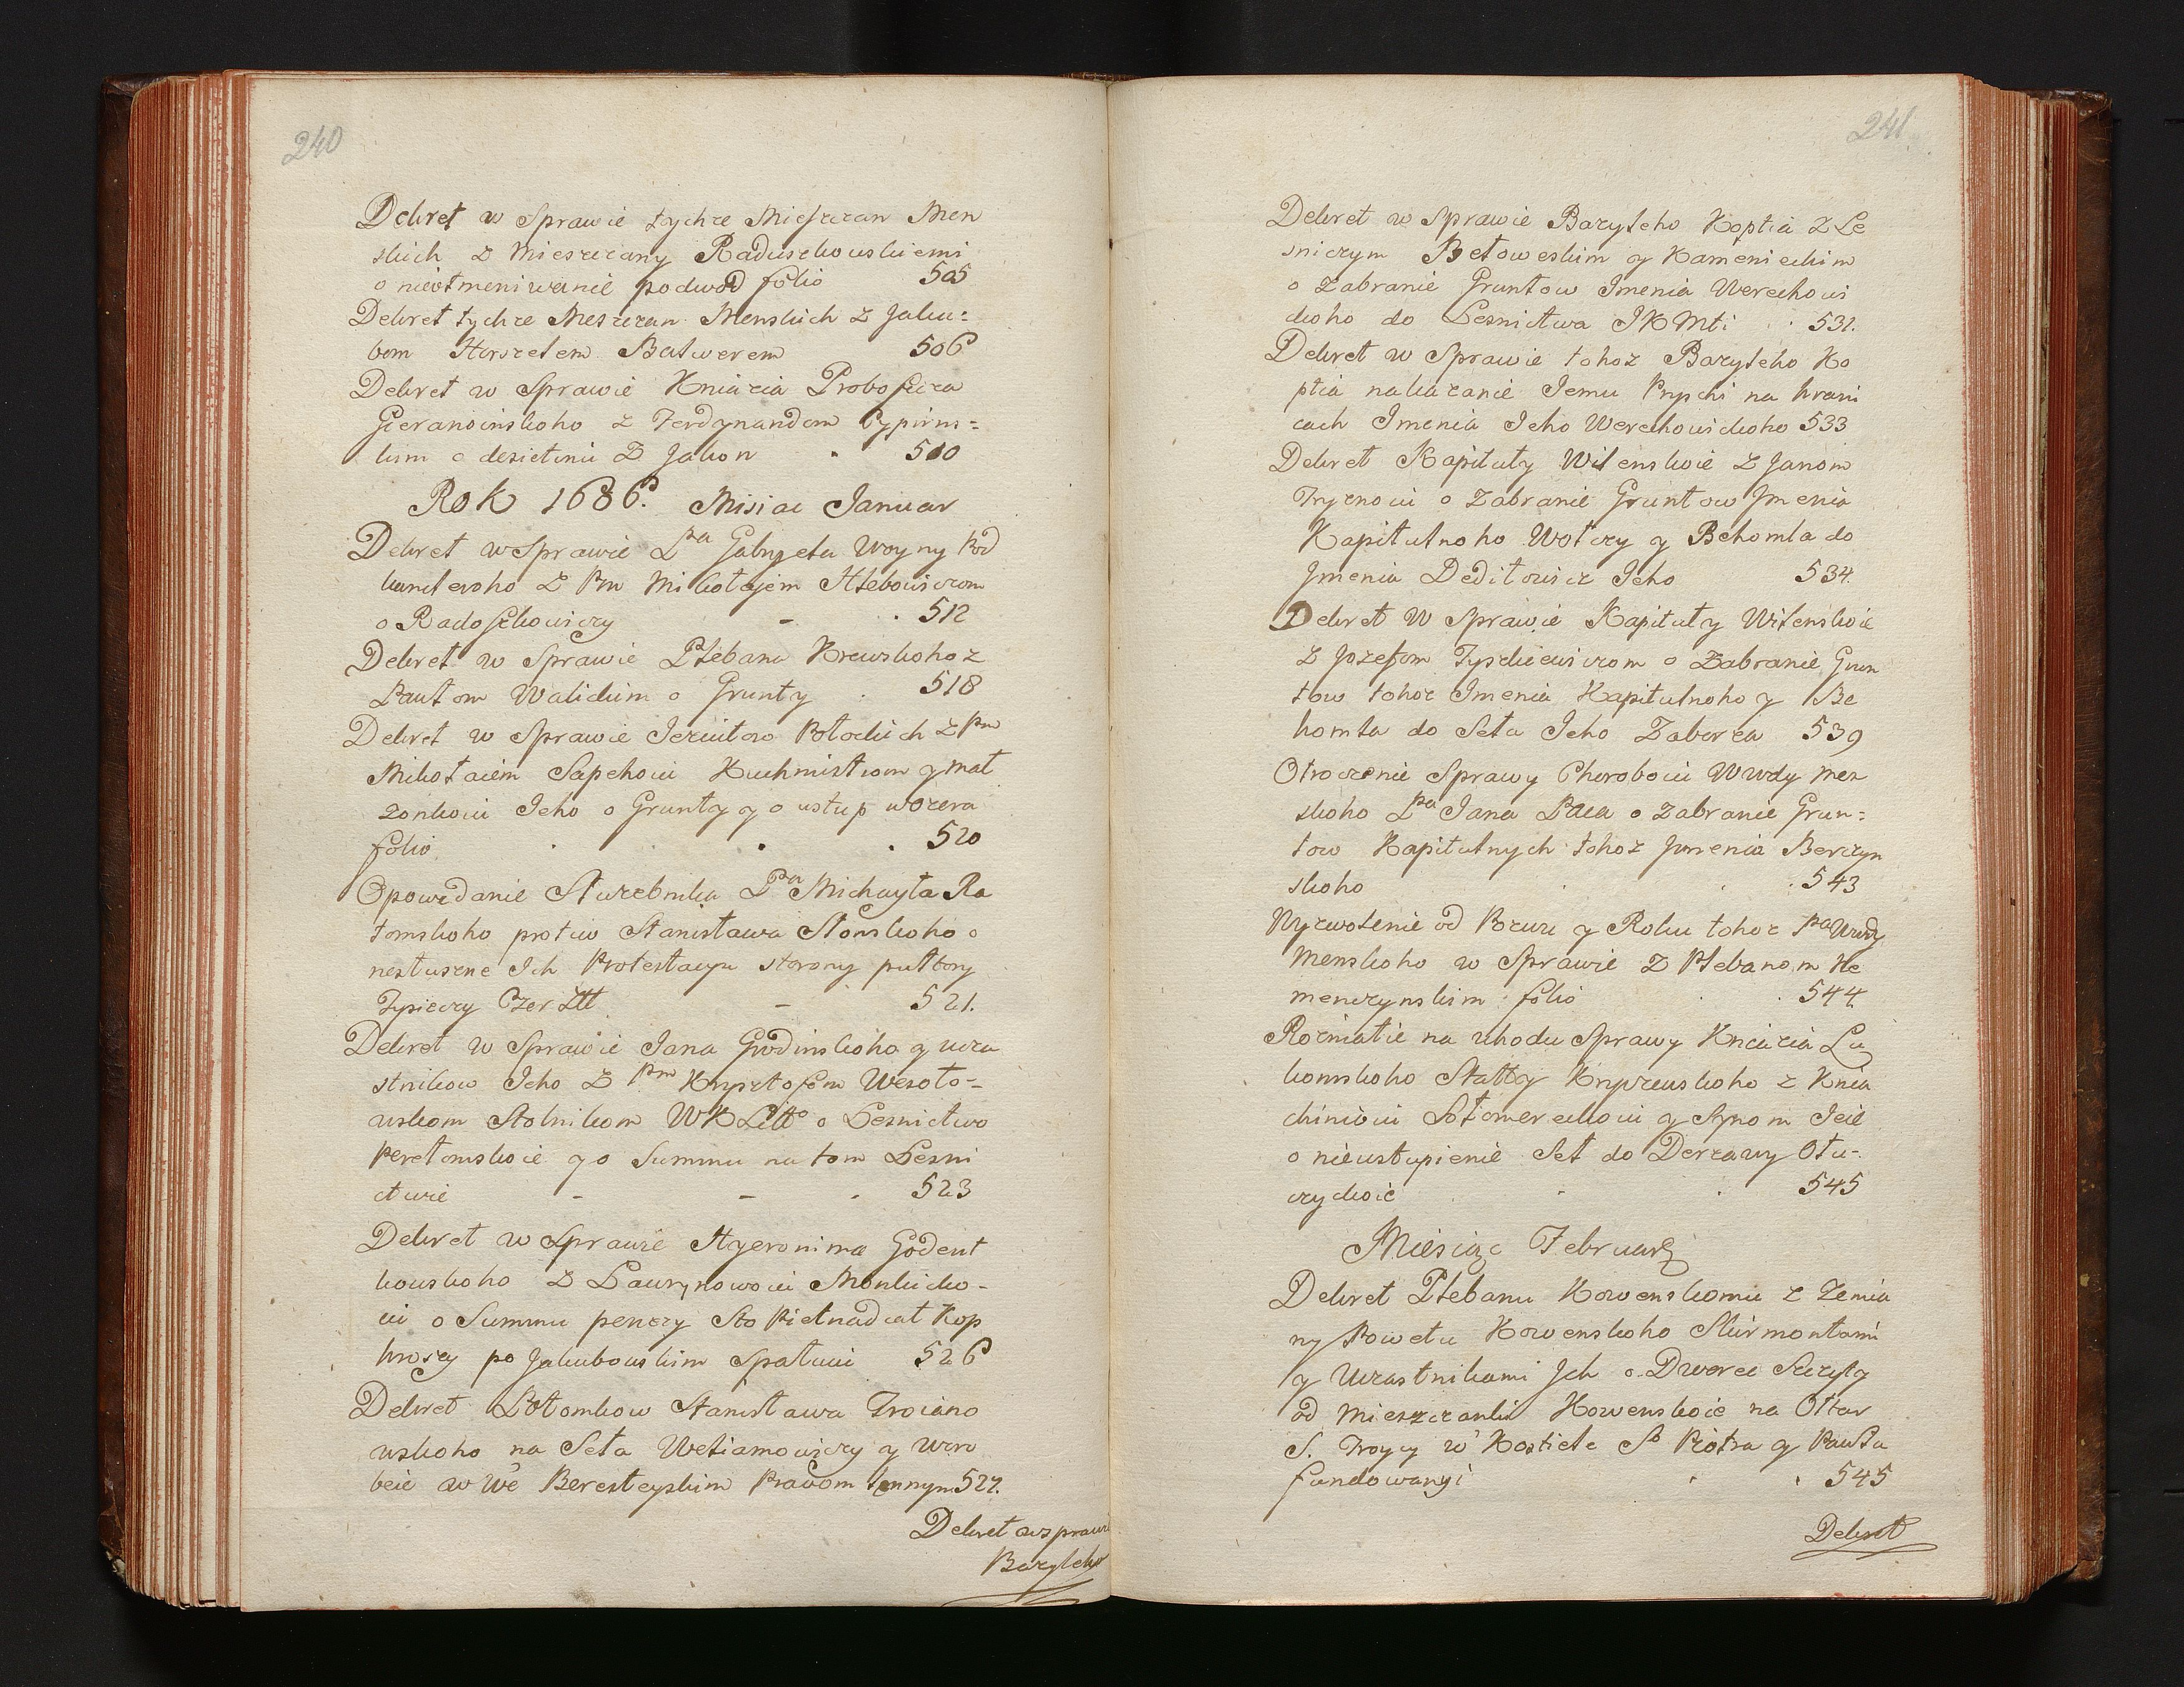 240
Dekret w Sprawie tychże Mieszczan Men
skich z Mieszczany Raduszkouskiemi
o nieotmeniwanie podwod folio 505
Dekret tychże Meszczan Menskich z Jaku=
bom Horszelem Balwerem 506
Dekret w Sprawie Kniazia Proboszcza
Gieranoinskoho z Ferdynandom Cypirins=
kim o desietinu z Jakon 510
Rok 1686. Misiac Januar
Dekret w Sprawie Pna Gabryela Woyny Pod
kanclersho z Pm Mikołajem Hlebowiczom
o Radoszkowiczy - . 512
Dekret w Sprawie Plebana Krewskoho z
Pawłom Walickim o Grunty . 518
Dekret w Sprawie Jezuitow Połockich z Pm
Mikołaiem Sapehoiu Kuchmistrom y mał
żonkoiu Jeho o Grunty y o ustup w ozera
folio . . . 520
Opowedanie Służebnika Pna Michayła Ra
tomskoho protiw Stanisława Słonskoho o
nesłuszne Ich Protestacyu storony pułtory
Tysieczy Czer Złł - 521.
Dekret w Sprawie Jana Grodinskoho y ucza
stnikow Jeho z Pm Krysztofom Wesoło-
wskom Stolnikom WKLitto o Lesnictwo
Perełomskoie y o Summu na tom Lesni
ctwie - - . 523
Dekret w Sprawie Hyeronima Godeut
kouskoho z Ławrynowoiu Monkicko-
iu o Summu penezy Sto Pietnadcat Kop
hroszy po Jakubouskim Spałuiu 526
Dekret Potomkow Stanisława Troiano
wskoho na Seła Weliamowiczy y Woro
beie w We Beresteyskim Prawom lennym 527.
Dekret w sprawi
Bazyleho
241
Dekret w Sprawie Bazyleho Koptia z Le
sniczym Bełoweskim y Kamenieckim
o Zabranie Gruntow Imenia Werechowi
ckoho do Lesnictwa JKMti . . 531.
Dekret w Sprawie tohoż Bazyleho Ko
ptia nakazanie Jemu Prysihi na hrani
cach Imenia Jeho Werechowickoho 533
Dekret Kapituły Wilenskoie z Janom
Tryznoiu o Zabranie Gruntow Imenia
Kapitulnoho Wołczy y Behomla do
Imenia Dediłowicz Jeho 534.
Dekret w Sprawie Kapituły Wilenskoie
z Jozefom Tyszkiewiczom o Zabranie Grun
tow tohoż Imenia Kapitulnoho y Be
homla do Seła Jeho Zaborza 539
Otroczenie Sprawy Choroboiu Wwdy Men
skoho Pna Jana Paca o zabranie Grun=
tow Kapitulnych tohoż Imenia Berezyn
skoho . . . 543
Wyzwolenie od Pozwu y Roku tohoż Pna Wwdy
Menskoho w Sprawie z Plebanom He
menczynskim folio . . 544.
Roznialie na uhodu Sprawy Kniazia Lu
komskoho Statty Kryczewskoho z Knia
chinioiu Sołomereckoiu y Synom Jeie
o nieustupienie Seł do Derżawy Ołu-
czyckoie . . 545
Miesiąc February
Dekret Plebanu Kowenskomu z Zemia
ny Powetu Kowenskoho Skirmontami
y Uczastnikami Ich o Dworec Szczyty
od Mieszczanki Kowenskoie na Ołtar
S. Troycy w Kostiele So Piotra y Pawła
fundowanyi . . 545
Dekret